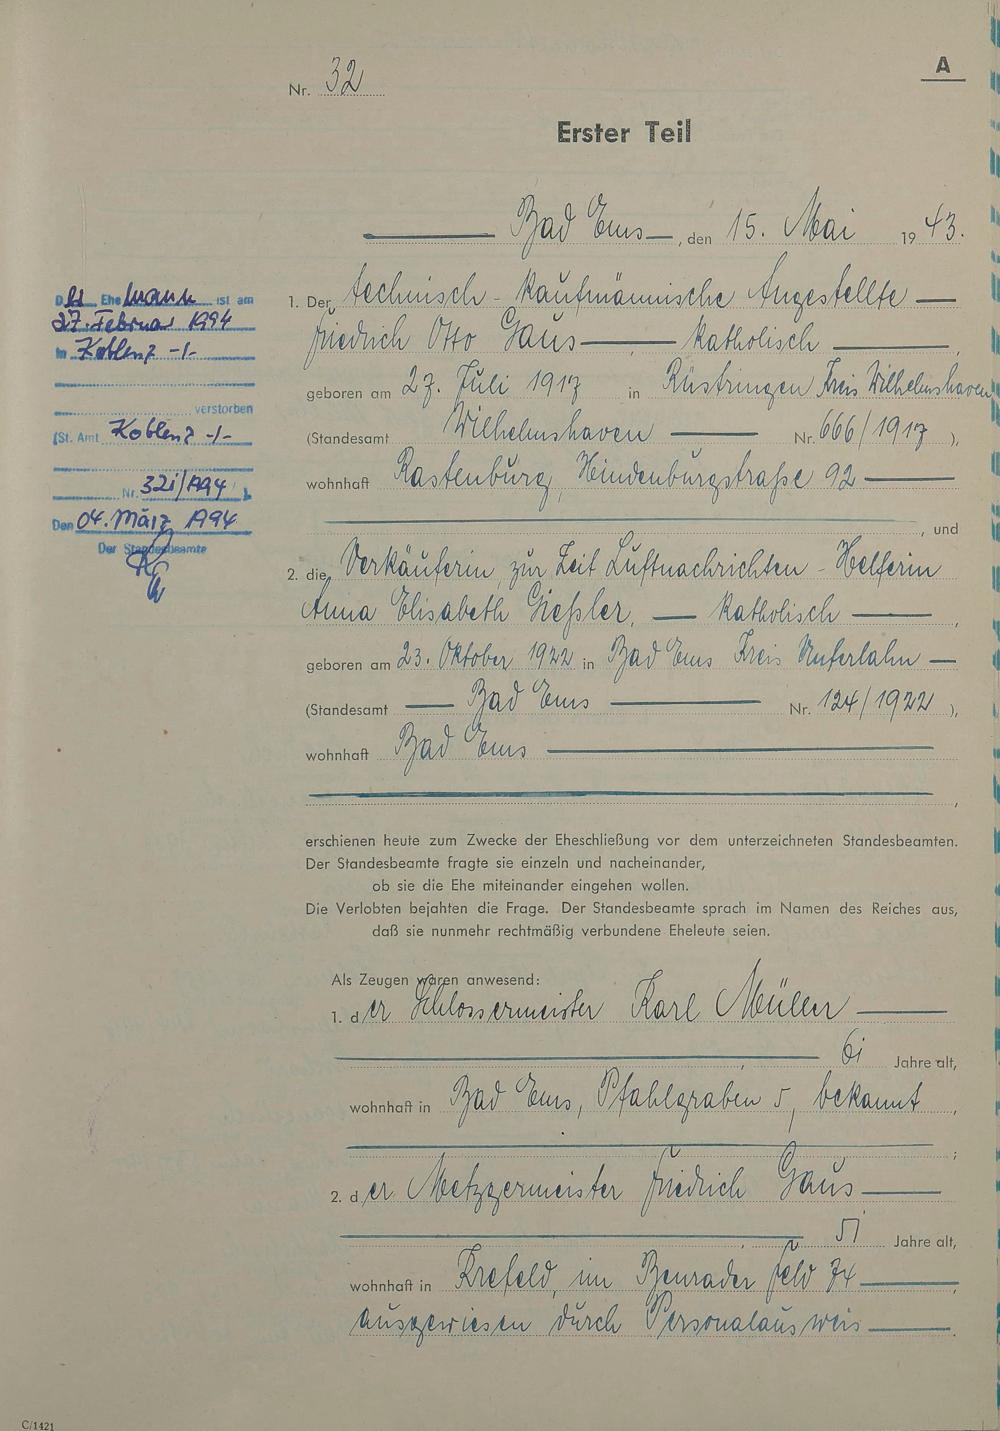 A
Nr. 32
Erster Teil
Bad Ems, den 15. Mai 1943.
1. Der technisch - kaufmännische Angestellte
Friedrich Otto Gaus, katholisch,
geboren am 27. Juli 1917 in Rüstringen Kreis Wilhelmshaven
(Standesamt Wilhelmshaven Nr. 666/1917),
wohnhaft Rastenburg, Hindenburgstraße 92
, und
2. die Verkäuferin, zur Zeit Luftnachrichten - Helferin
Anna Elisabeth Gießler, katholisch,
geboren am 23. Oktober 1922 in Bad Ems Kreis Unterlahn
(Standesamt Bad Ems Nr. 124/1922),
wohnhaft Bad Ems
,
erschienen heute zum Zwecke der Eheschließung vor dem unterzeichneten Standesbeamten.
Der Standesbeamte fragte sie einzeln und nacheinander,
ob sie die Ehe miteinander eingehen wollen.
Die Verlobten bejahten die Frage. Der Standesbeamte sprach im Namen des Reiches aus,
daß sie nunmehr rechtmäßig verbundene Eheleute seien.
Als Zeugen waren anwesend:
1. der Schlossermeister Karl Müller
, 61 Jahre alt,
wohnhaft in Bad Ems, Pfahlgraben 5, bekannt,
;
2. der Metzgermeister Friedrich Gaus
, 51 Jahre alt,
wohnhaft in Krefeld, im Benrader Feld 74,
ausgewiesen durch Personalausweis.
Der Ehemann ist am
27. Februar 1994
in Koblenz -I-
verstorben
(St. Amt Koblenz -I-
Nr. 321/1994).
Den 04. März 1994
Der Standesbeamte
C/1421